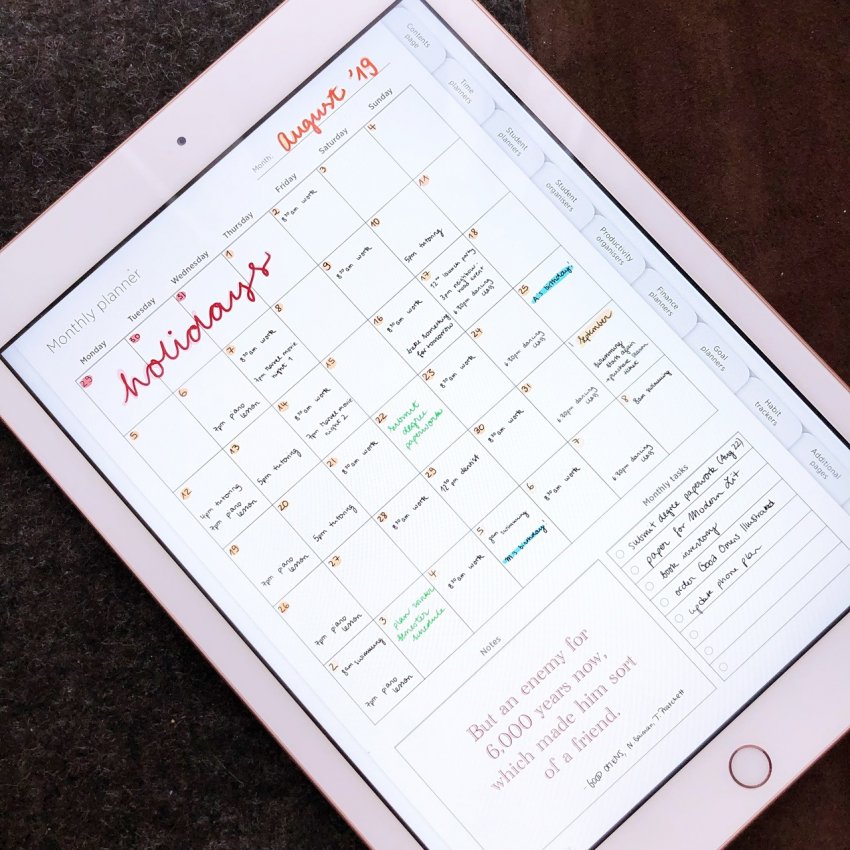 Contents page
Time planners
Student planners
Student organisers
Productivity organisers
Finance planners
Goal planners
Habit trackers
Additional pages
Monthly planner
Month: August '19
Monday Tuesday Wednesday Thursday Friday Saturday Sunday
29 30 31 1 2 3 4
holidays
8⁰⁰am work
5 6 7 8 9 10 11
7pm piano lesson
8⁰⁰am work
7pm movie night 1
8⁰⁰am work
5pm tutoring
12 13 14 15 16 17 18
4pm tutoring
7pm piano lesson
5pm tutoring
8⁰⁰am work
7pm movie night 2
8⁰⁰am work
bake something for tomorrow
12⁰⁰ launch party
3pm neighbour-
hood meet
6³⁰pm dancing class
19 20 21 22 23 24 25
7pm piano lesson
5pm tutoring
8⁰⁰am work
submit
degree
paperwork
8⁰⁰am work
6³⁰pm dancing class
A.'s birthday
26 27 28 29 30 31 1 September
7pm piano lesson
8⁰⁰am work
12³⁰pm dentist
8⁰⁰am work
6³⁰pm dancing class
swimming
starts again
- purchase season
ticket
2 3 4 5 6 7 8
8am swimming
7pm piano lesson
plan winter
semester
schedule
8⁰⁰am work
8am swimming
M.'s birthday
8⁰⁰am work
6³⁰pm dancing class
8am swimming
Monthly tasks
submit degree paperwork (Aug 22)
paper for Modern Lit
book inventory
order Good Omens Illustrated
update phone plan
Notes
But an enemy for
6,000 years now,
which made him sort
of a friend.
- GOOD OMENS, N. Gaiman, T. Pratchett